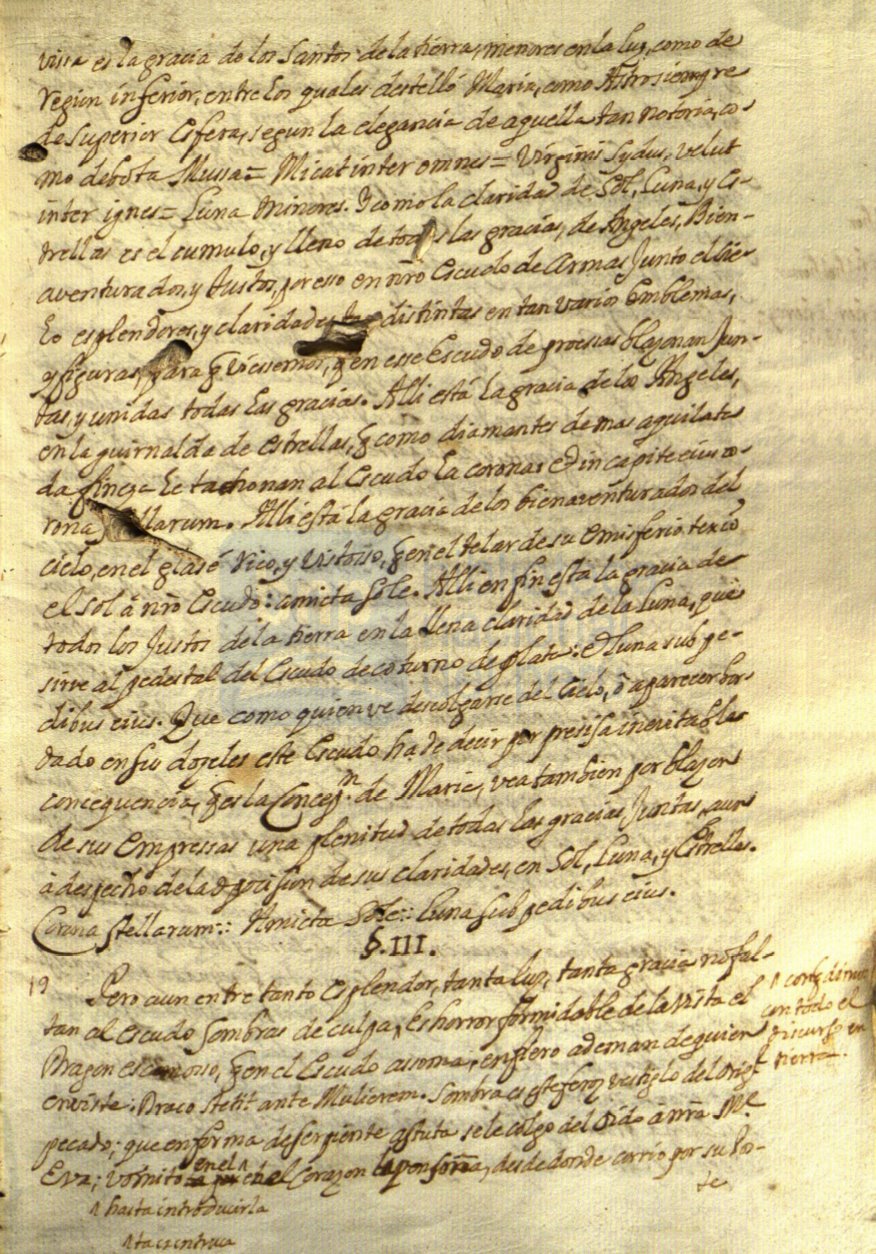 vissa es la gracia de los Santos de la tierra, menores en la luz, como de
region inferior, entre los quales destelló Maria, como Astro siempre
de superior Esfera, segun la elegancia de aquella tan notoria, co-
mo debota Mussa = Micat inter omnes = Virginis Sydus, velut
inter ignes = Luna Minores. Y como la claridad de Sol, Luna, y Es-
trellas es el cumulo, y lleno de todas las gracias, de Angeles, Bien-
aventurados, y Justos, por esso en nrõ Escudo de armas junto el Cie-
lo esplendores, y claridades distintas en tan varios Emblemas,
y figuras, para q̃ en esse Escudo de proesas blazonan Jun-
tas, y unidas todas las gracias. Alli está la gracia de los Angeles,
en la guirnalda de estrellas, q̃ como diamantes de mas aquilata
da fineza le tachonan al Escudo la corona: & in capite eius co-
rona stellarum. Alli está la gracia de los bienaventurados del
cielo, en el glasé rico, y vistoso, q̃ en el telar de su emisferio texió
el sol á nrõ Escudo: amicta sole. Alli en fin esta la gracia de
todos los Justos de la tierra en la llena claridad de la Luna, que
sirve al pedestal del Escudo de coturno de plata: & Luna sub pe-
dibus eius. Que como quien ve descolgarse del Cielo, ò aparecer bor
dado en su dozeles este Escudo, ha de decir por presisa inevitable
consequencia, q̃ es la Concepn. de Maria, vea tambien por blazon
de sus Empressas una plenitud de todas las gracias juntas, aun
á despecho de la oposision de sus claridades, en Sol, Luna, y Estrellas.
Corona stellarum:: Amicta Sole:: luna sub pedibus eius.
§. III.
19 Pero aun entre tanto esplendor, tanta luz, tanta gracia no fal-
tan al escudo sombras de culpa, Es horror formidable de la vista el
Dragon escamoso, q̃ en el Escudo assoma, en fiero ademan de quien
enviste: Draco stetit ante Mulierem. Sombra es este feroz vestiglo del Orig.l
pecado; que en forma de serpiente astuta se le colgo del oido á nrã Me.
Eva; vomitó en el Corazon la ponsoña, desde donde corrio por su pos-
te
^ hasta introducirla
con todo el
discurso en
tierra.